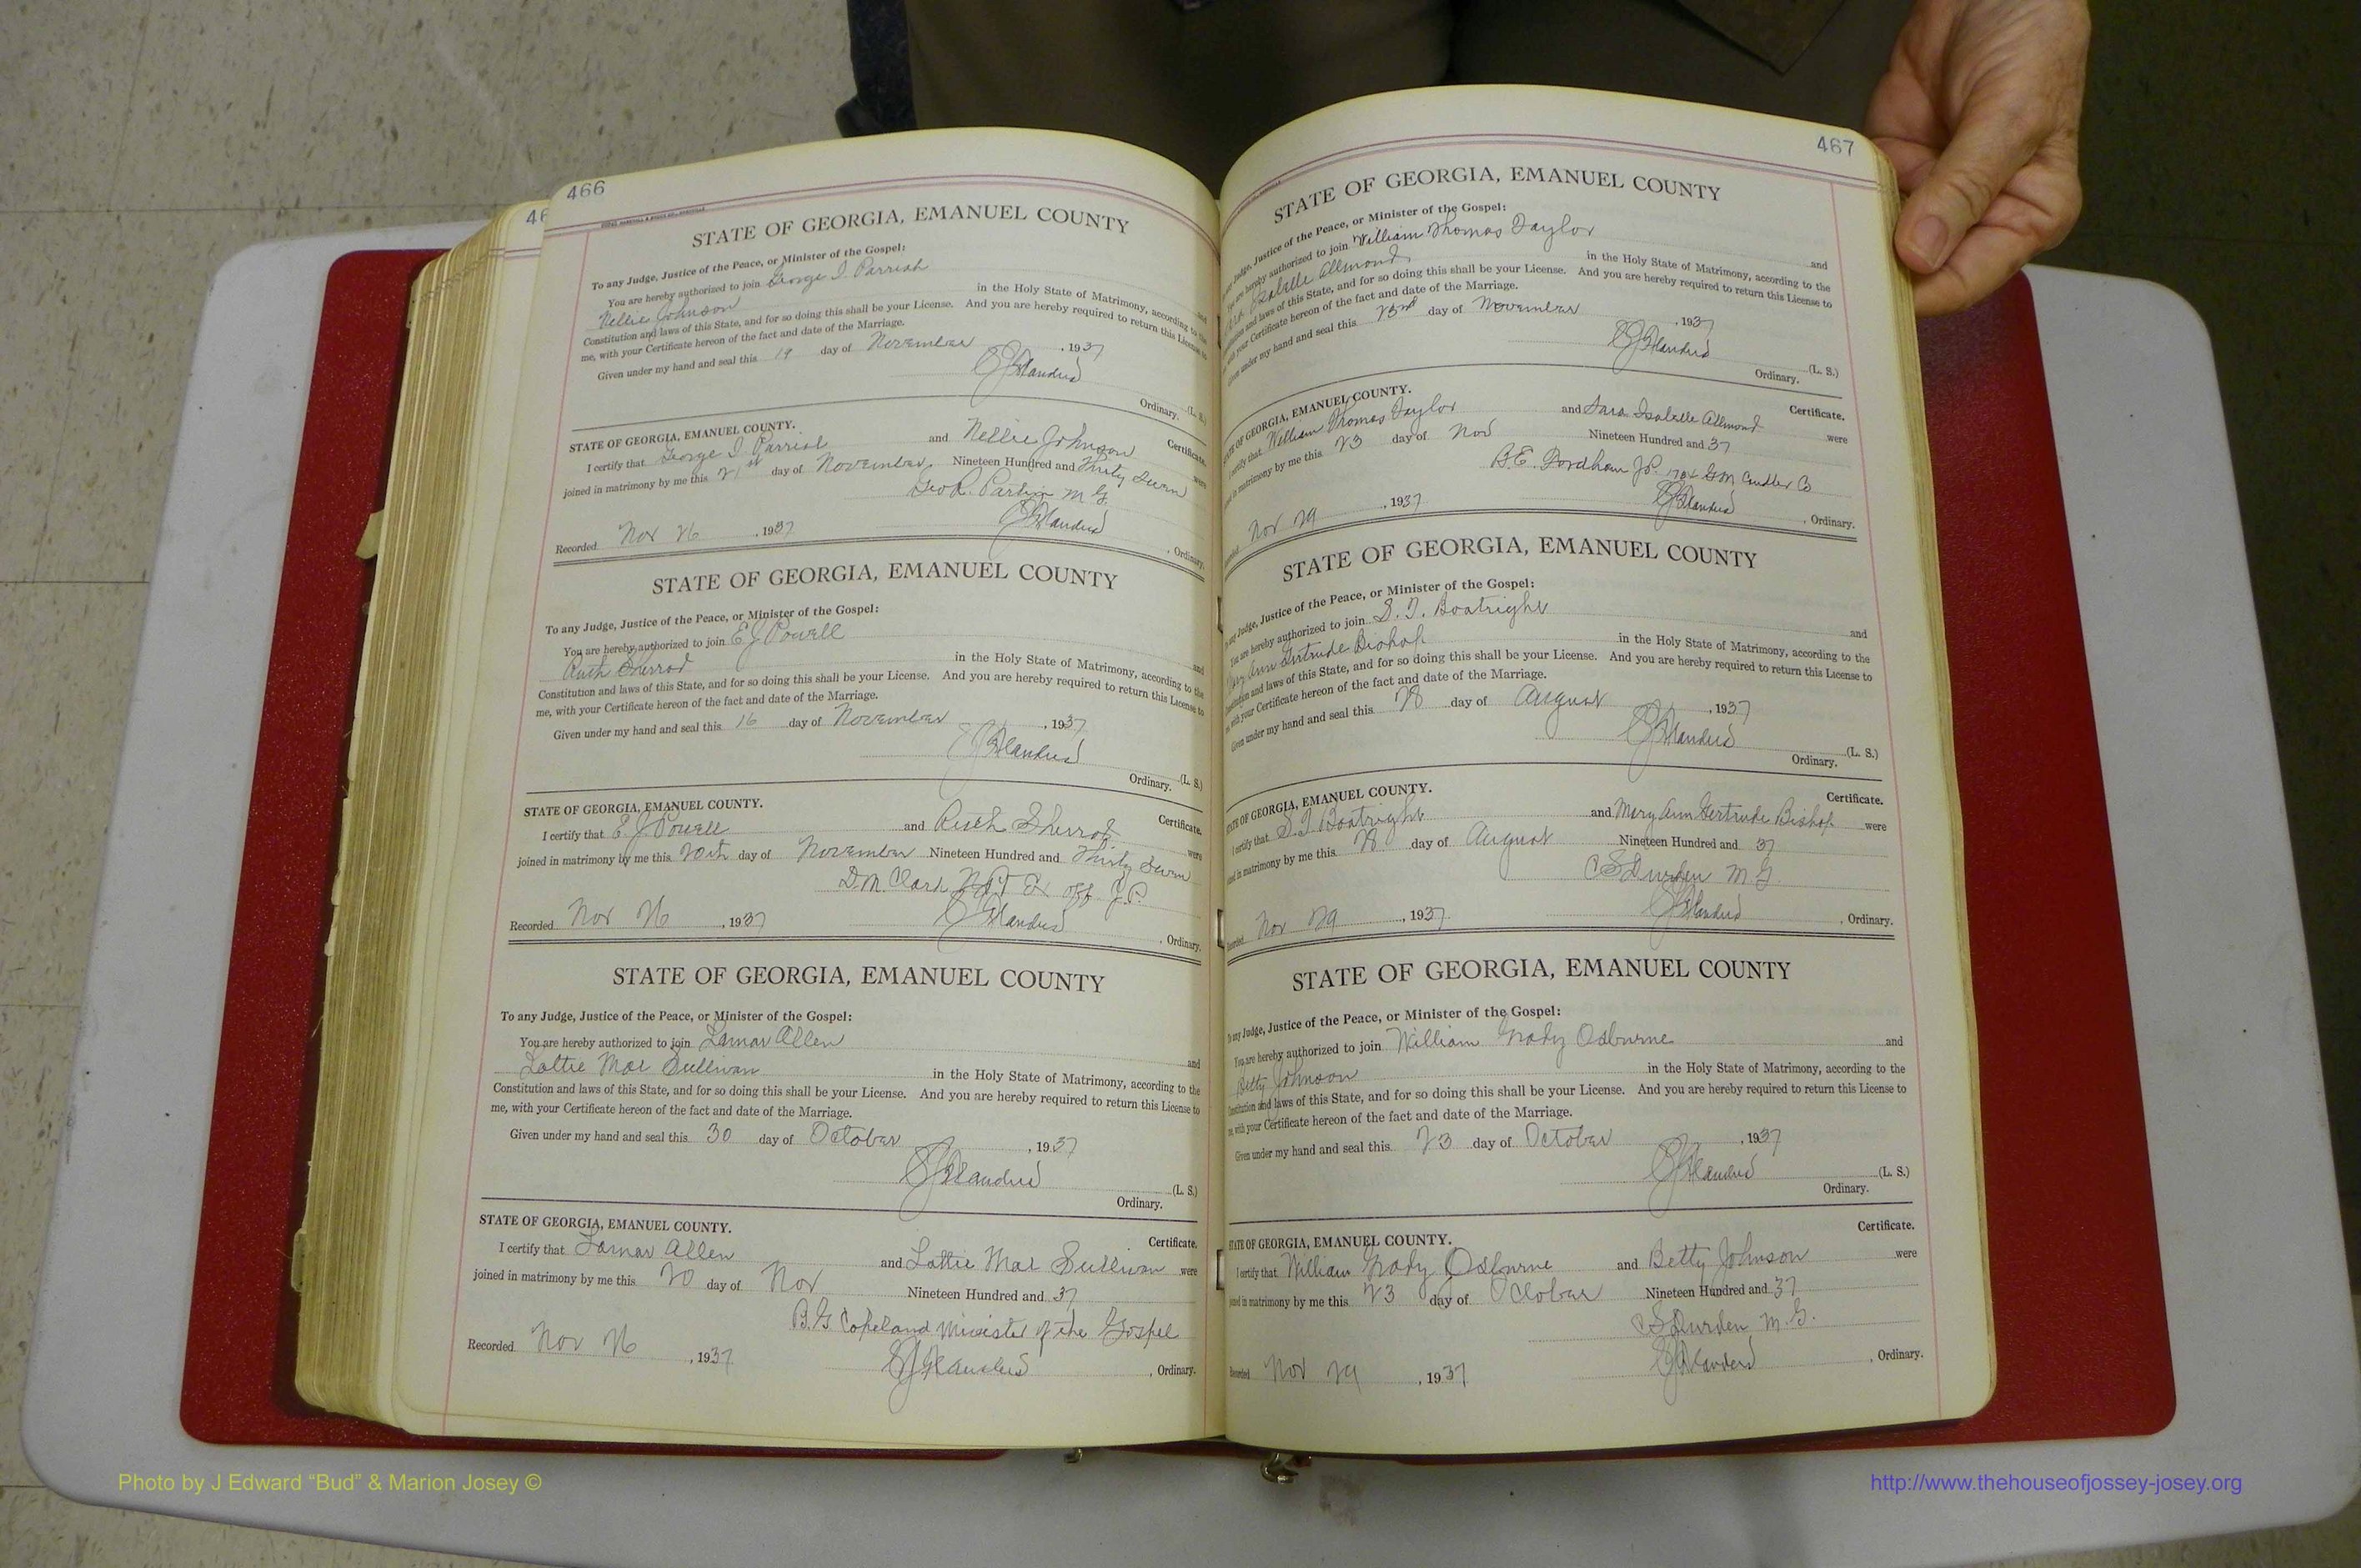 466
STATE OF GEORGIA, EMANUEL COUNTY
To any Judge, Justice of the Peace, or Minister of the Gospel:
You are hereby authorized to join George I. Parrish and
Nellie Johnson in the Holy State of Matrimony, according to the
Constitution and laws of this State, and for so doing this shall be your License. And you are hereby required to return this License to
me, with your Certificate hereon of the fact and date of the Marriage.
Given under my hand and seal this 19 day of November, 1937
(L. S.)
Ordinary.
STATE OF GEORGIA, EMANUEL COUNTY. Certificate.
I certify that George I. Parrish and Nellie Johnson were
joined in matrimony by me this 21st day of November, Nineteen Hundred and Thirty Seven
M G.
Recorded Nov 26, 1937 , Ordinary.
STATE OF GEORGIA, EMANUEL COUNTY
To any Judge, Justice of the Peace, or Minister of the Gospel:
You are hereby authorized to join E J Powell and
Ruth Sherrod in the Holy State of Matrimony, according to the
Constitution and laws of this State, and for so doing this shall be your License. And you are hereby required to return this License to
me, with your Certificate hereon of the fact and date of the Marriage.
Given under my hand and seal this 16 day of November, 1937
(L. S.)
Ordinary.
STATE OF GEORGIA, EMANUEL COUNTY. Certificate.
I certify that E. J. Powell and Ruth Sherrod were
joined in matrimony by me this 20th day of November Nineteen Hundred and Thirty Seven
D. M. Clark N.P. & Ex off J.P.
Recorded Nov 26, 1937 , Ordinary.
STATE OF GEORGIA, EMANUEL COUNTY
To any Judge, Justice of the Peace, or Minister of the Gospel:
You are hereby authorized to join Lamar Allen and
Lottie Mae Sullivan in the Holy State of Matrimony, according to the
Constitution and laws of this State, and for so doing this shall be your License. And you are hereby required to return this License to
me, with your Certificate hereon of the fact and date of the Marriage.
Given under my hand and seal this 30 day of October, 1937
(L. S.)
Ordinary.
STATE OF GEORGIA, EMANUEL COUNTY. Certificate.
I certify that Lamar Allen and Lottie Mae Sullivan were
joined in matrimony by me this 20 day of Nov Nineteen Hundred and 37
B. G Copeland Minister of the Gospel
Recorded Nov 26, 1937 , Ordinary.
467
STATE OF GEORGIA, EMANUEL COUNTY
Judge, Justice of the Peace, or Minister of the Gospel:
are hereby authorized to join William Thomas Taylor and
Isabelle Allmond in the Holy State of Matrimony, according to the
and laws of this State, and for so doing this shall be your License. And you are hereby required to return this License to
with your Certificate hereon of the fact and date of the Marriage.
Given under my hand and seal this 23rd day of November, 1937
(L. S.)
Ordinary.
STATE OF GEORGIA, EMANUEL COUNTY. Certificate.
I certify that William Thomas Taylor and Sara Isabelle Allmond were
in matrimony by me this 23 day of Nov Nineteen Hundred and 37
B. E. Fordham J.P. GM Candler Co
Nov 29, 1937 , Ordinary.
STATE OF GEORGIA, EMANUEL COUNTY
any Judge, Justice of the Peace, or Minister of the Gospel:
You are hereby authorized to join S. T. Boatright and
Mary Ann Gertrude Bishop in the Holy State of Matrimony, according to the
Constitution and laws of this State, and for so doing this shall be your License. And you are hereby required to return this License to
with your Certificate hereon of the fact and date of the Marriage.
Given under my hand and seal this 28 day of August, 1937
(L. S.)
Ordinary.
STATE OF GEORGIA, EMANUEL COUNTY. Certificate.
I certify that S. T. Boatright and Mary Ann Gertrude Bishop were
joined in matrimony by me this 28 day of August Nineteen Hundred and 37
C S Durden M. G.
Recorded Nov 29, 1937. , Ordinary.
STATE OF GEORGIA, EMANUEL COUNTY
To any Judge, Justice of the Peace, or Minister of the Gospel:
You are hereby authorized to join William Grady Osburne and
Betty Johnson in the Holy State of Matrimony, according to the
Constitution and laws of this State, and for so doing this shall be your License. And you are hereby required to return this License to
me, with your Certificate hereon of the fact and date of the Marriage.
Given under my hand and seal this 23 day of October, 1937
(L. S.)
Ordinary.
STATE OF GEORGIA, EMANUEL COUNTY. Certificate.
I certify that William Grady Osburne and Betty Johnson were
joined in matrimony by me this 23 day of October Nineteen Hundred and 37
C S Durden M. G.
Recorded Nov 29, 1937 , Ordinary.
Photo by J Edward “Bud” & Marion Josey ©
http://www.thehouseofjossey-josey.org